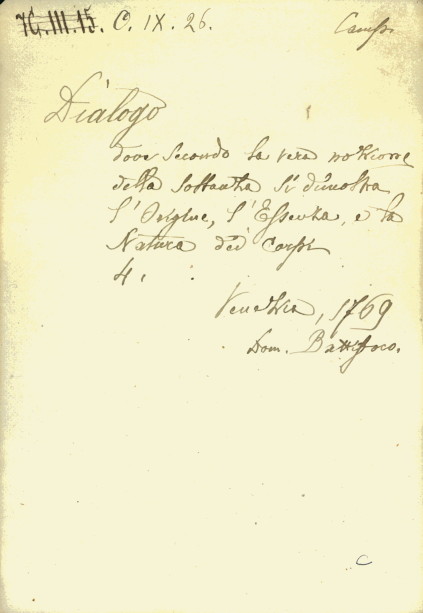 7G.III.15. C. IX. 26.
Dialogo
dove secondo la vera nozione
della sostanza si dimostra
l'Origine, l'Essenza, e la
Natura dei Corpi
4.
Venezia, 1769
Dom. Battifoco.
C